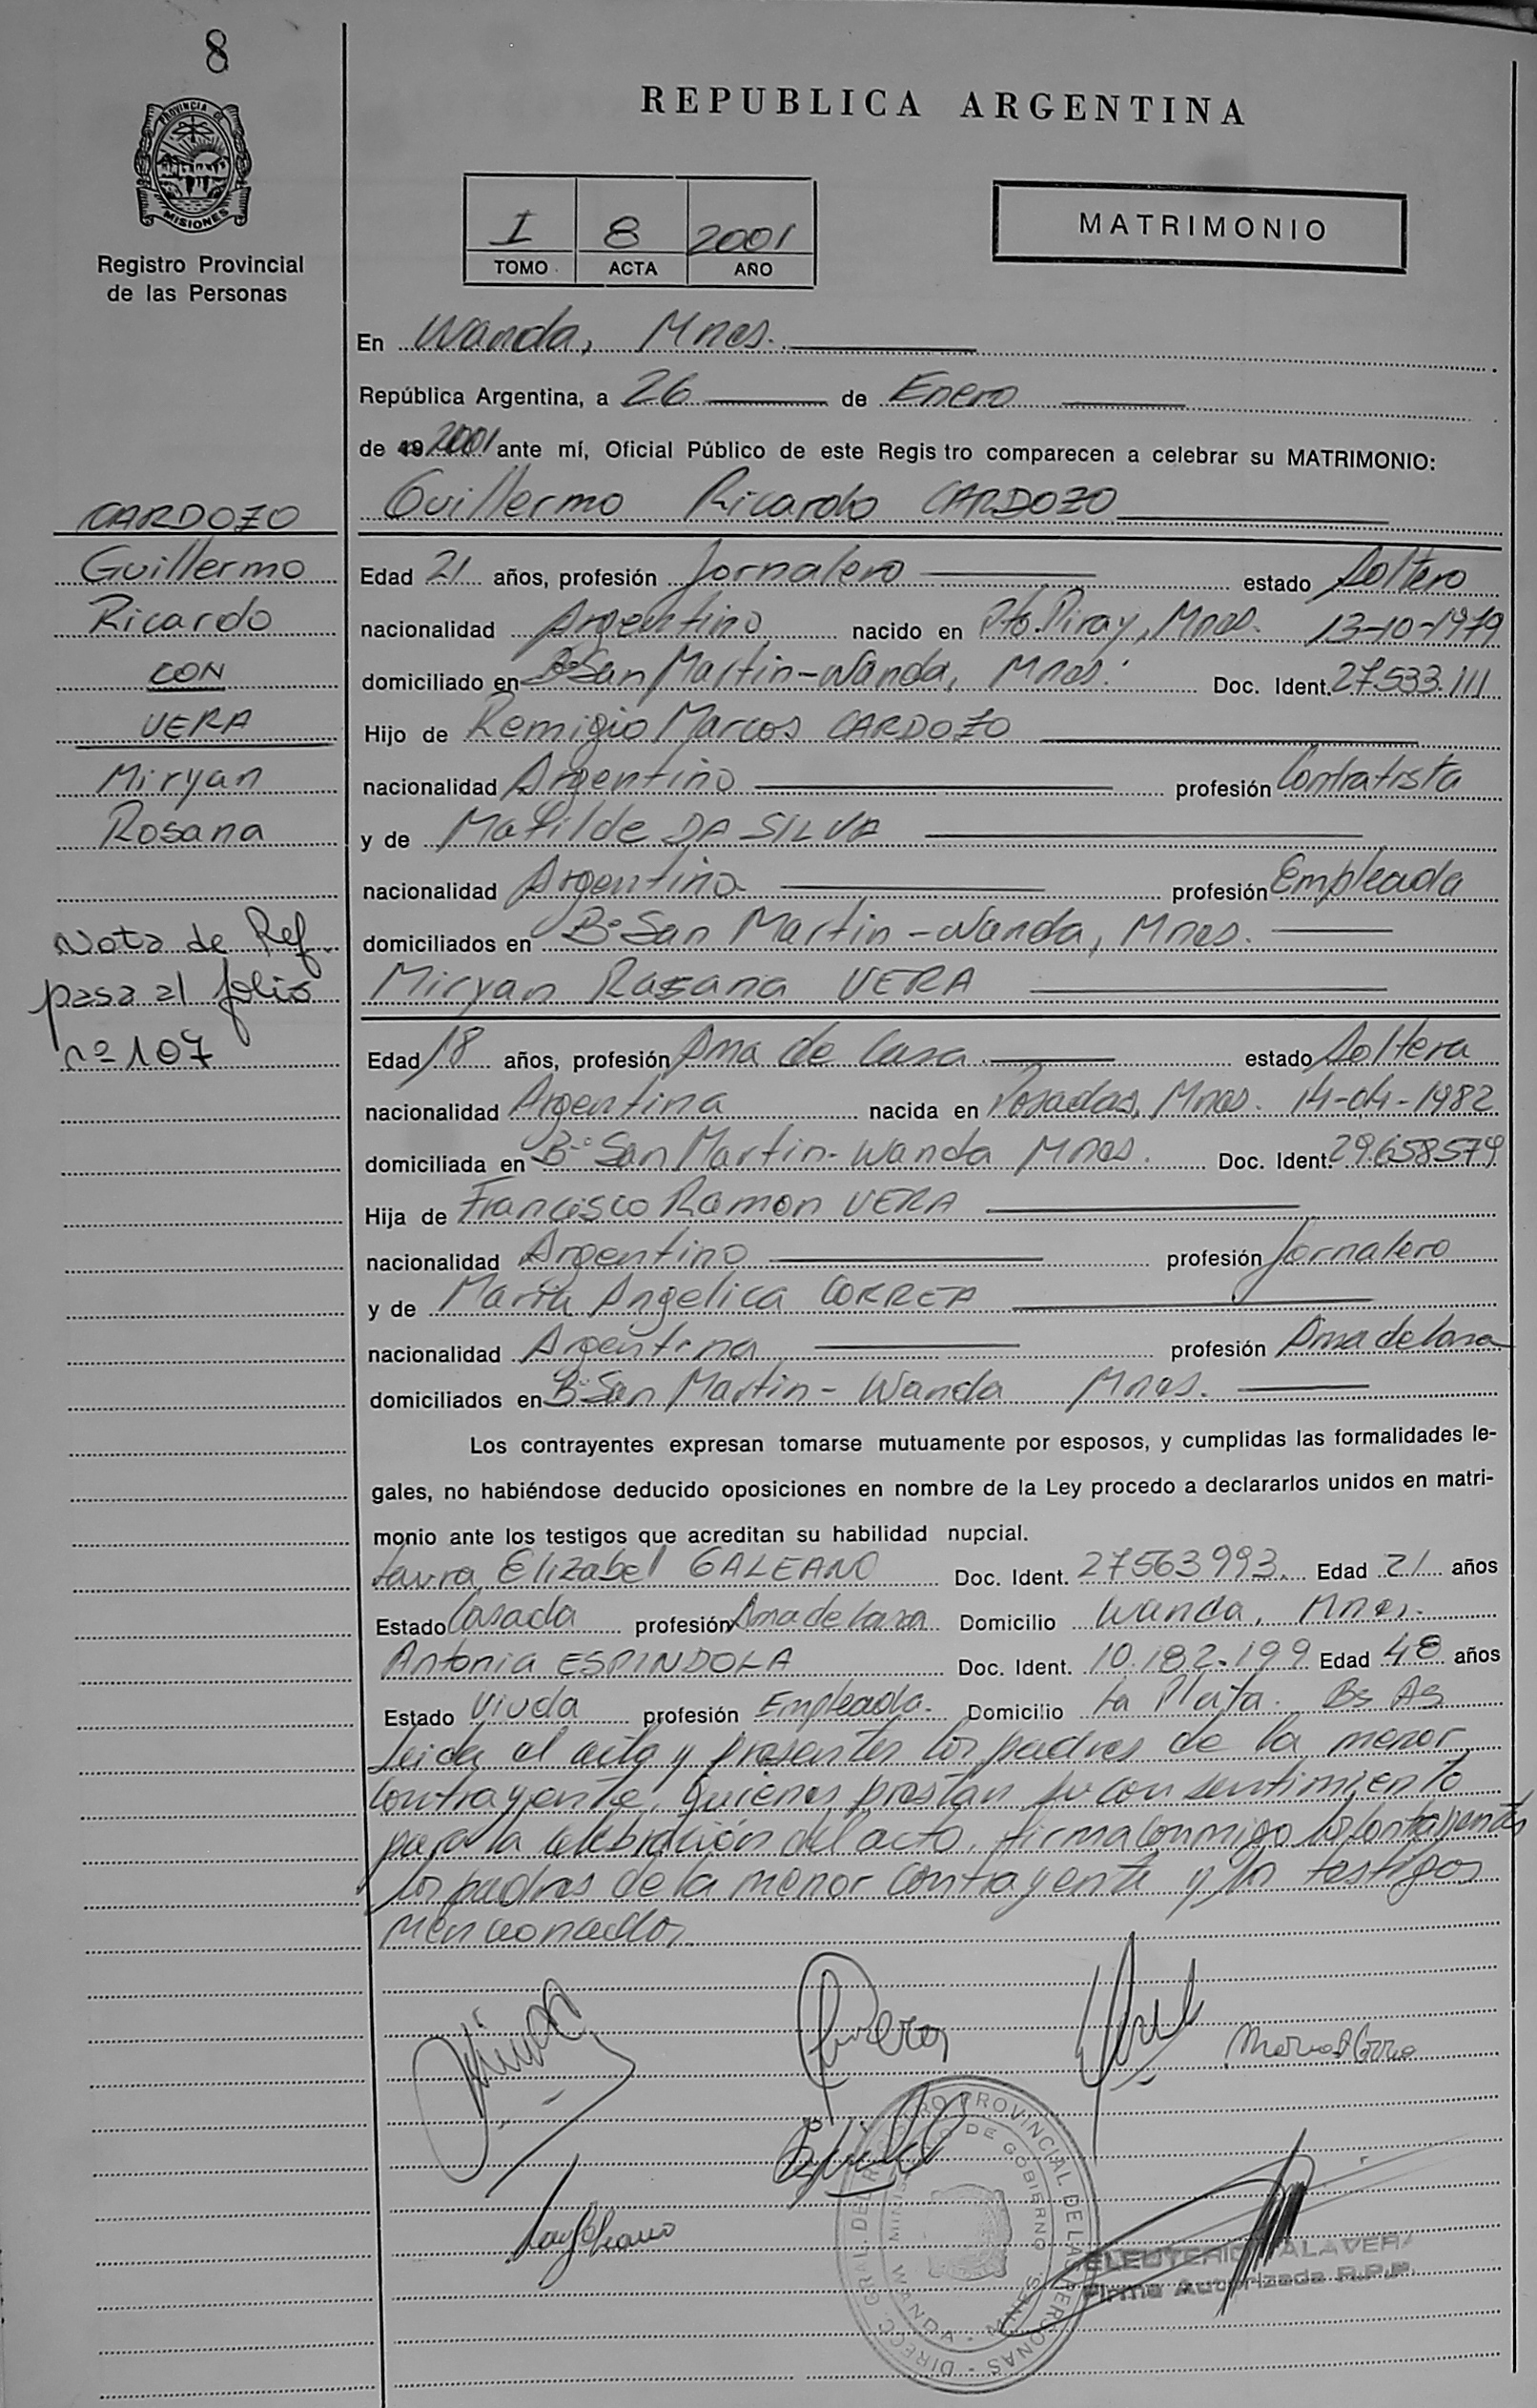 8
PROVINCIA DE
MISIONES
Registro Provincial
de las Personas
REPUBLICA ARGENTINA
I 8 2001
TOMO ACTA AÑO
MATRIMONIO
En Wanda, Mnes.
República Argentina, a 26 de Enero
de 19 2001 ante mí, Oficial Público de este Regis tro comparecen a celebrar su MATRIMONIO:
CARDOZO
Guillermo
Ricardo
CON
VERA
Miryan
Rosana
Nota de Ref
pasa al folio
nº 107
Guillermo Ricardo CARDOZO
Edad 21 años, profesión Jornalero estado Soltero
nacionalidad Argentino nacido en Pto. Piray, Mnes. 13-10-1979
domiciliado en Bº San Martin - Wanda, Mnes. Doc. Ident. 27.533.111
Hijo de Remigio Marcos CARDOZO
nacionalidad Argentino profesión Contratista
y de Matilde DA SILVA
nacionalidad Argentina profesión Empleada
domiciliados en Bº San Martin - Wanda, Mnes.
Miryan Rosana VERA
Edad 18 años, profesión Ama de Casa estado Soltera
nacionalidad Argentina nacida en Posadas, Mnes. 14-04-1982
domiciliada en Bº San Martin - Wanda Mnes. Doc. Ident. 29.658579
Hija de Francisco Ramon VERA
nacionalidad Argentino profesión Jornalero
y de Maria Angelica CORREA
nacionalidad Argentina profesión Ama de Casa
domiciliados en Bº San Martin - Wanda Mnes.
Los contrayentes expresan tomarse mutuamente por esposos, y cumplidas las formalidades le-
gales, no habiéndose deducido oposiciones en nombre de la Ley procedo a declararlos unidos en matri-
monio ante los testigos que acreditan su habilidad nupcial.
Laura Elizabel GALEANO Doc. Ident. 27563993. Edad 21 años
Estado Casada profesión Ama de Casa Domicilio Wanda, Mnes.
Antonia ESPINDOLA Doc. Ident. 10.182.199 Edad 48 años
Estado Viuda profesión Empleada. Domicilio La Plata. Bs As
Leida el acta y presentes los padres de la menor
contrayente, quienes prestan su consentimiento
para la celebración del acto, firma conmigo los contrayentes
los padres de la menor contrayente y los testigos
mencionados
DIRECC. GRAL. DEL REGISTRO PROVINCIAL DE LAS PERSONAS
MINISTERIO DE GOBIERNO
WANDA - MNES
ELEUTERIO TALAVERA
Firma Autorizada R.P.P.